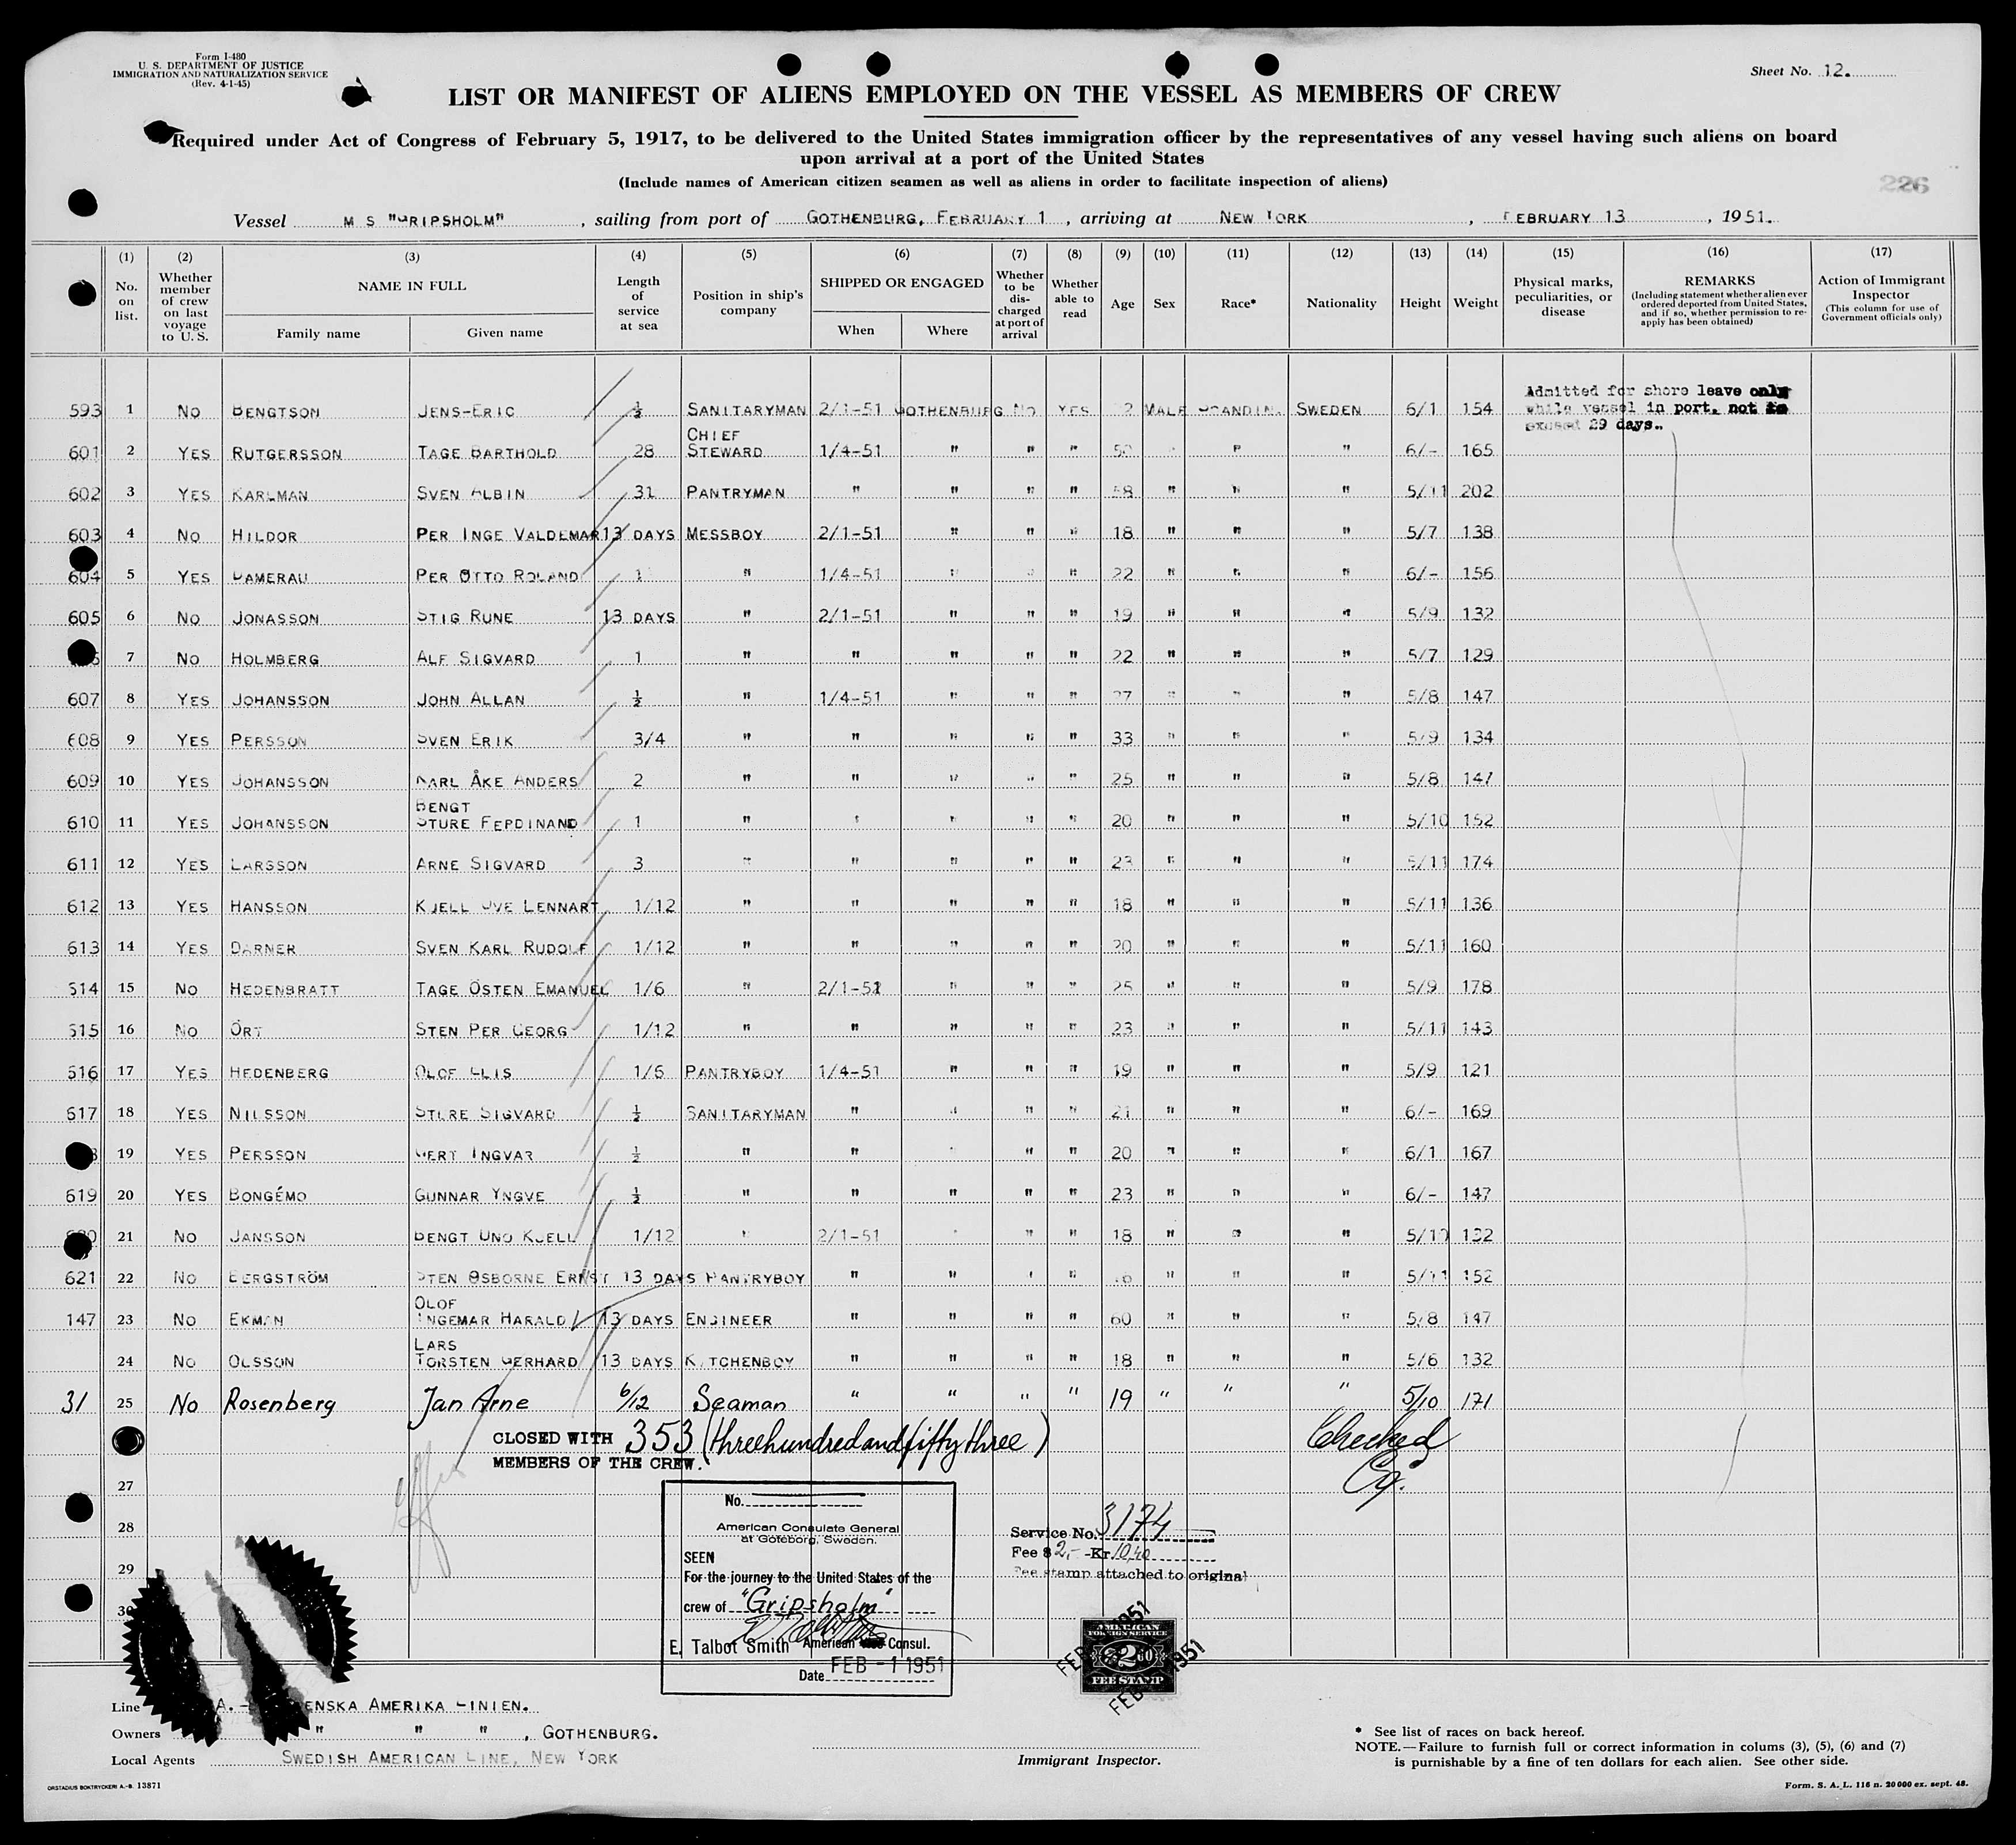 Form I-480
U. S. DEPARTMENT OF JUSTICE
IMMIGRATION AND NATURALIZATION SERVICE
(Rev. 4-1-45)
Sheet No. 12.
LIST OR MANIFEST OF ALIENS EMPLOYED ON THE VESSEL AS MEMBERS OF CREW
Required under Act of Congress of February 5, 1917, to be delivered to the United States immigration officer by the representatives of any vessel having such aliens on board
upon arrival at a port of the United States
(Include names of American citizen seamen as well as aliens in order to facilitate inspection of aliens)
226
Vessel M S "GRIPSHOLM", sailing from port of GOTHENBURG, FEBRUARY 1, arriving at NEW YORK, FEBRUARY 13, 1951.
(1) No. on list.
(2) Whether member of crew on last voyage to U. S.
(3) NAME IN FULL Family name Given name
(4) Length of service at sea
(5) Position in ship's company
(6) SHIPPED OR ENGAGED When Where
(7) Whether to be discharged at port of arrival
(8) Whether able to read
(9) Age
(10) Sex
(11) Race*
(12) Nationality
(13) Height
(14) Weight
(15) Physical marks, peculiarities, or disease
(16) REMARKS (Including statement whether alien ever ordered deported from United States, and if so, whether permission to re-apply has been obtained)
(17) Action of Immigrant Inspector (This column for use of Government officials only)
Admitted for shore leave only
while vessel in port, not to
exceed 29 days.
593 1 NO BENGTSON JENS-ERIC ½ SANITARYMAN 2/1-51 GOTHENBURG NO YES MALE SCANDIN. SWEDEN 6/1 154
601 2 YES RUTGERSSON TAGE BARTHOLD 28 CHIEF STEWARD 1/4-51 " " " 50 " " 6/- 165
602 3 YES KARLMAN SVEN ALBIN 31 PANTRYMAN " " " " 58 " " " 5/11 202
603 4 NO HILDOR PER INGE VALDEMAR 13 DAYS MESSBOY 2/1-51 " " " 18 " " " 5/7 138
604 5 YES DAMERAU PER OTTO ROLAND 1 " 1/4-51 " " " 22 " " " 6/- 156
605 6 NO JONASSON STIG RUNE 13 DAYS " 2/1-51 " " " 19 " " " 5/9 132
7 NO HOLMBERG ALF SIGVARD 1 " " " " " 22 " " " 5/7 129
607 8 YES JOHANSSON JOHN ALLAN ½ " 1/4-51 " " " 27 " " " 5/8 147
608 9 YES PERSSON SVEN ERIK 3/4 " " " " " 33 " " " 5/9 134
609 10 YES JOHANSSON KARL ÅKE ANDERS 2 " " " " " 25 " " " 5/8 147
610 11 YES JOHANSSON BENGT STURE FERDINAND 1 " " " " " 20 " " " 5/10 152
611 12 YES LARSSON ARNE SIGVARD 3 " " " " " 23 " " " 5/11 174
612 13 YES HANSSON KJELL OVE LENNART 1/12 " " " " " 18 " " " 5/11 136
613 14 YES DARNER SVEN KARL RUDOLF 1/12 " " " " " 20 " " " 5/11 160
614 15 NO HEDENBRATT TAGE ÖSTEN EMANUEL 1/6 " 2/1-51 " " " 25 " " " 5/9 178
615 16 NO ÖRT STEN PER GEORG 1/12 " " " " " 23 " " " 5/11 143
616 17 YES HEDENBERG OLOF ELIS 1/6 PANTRYBOY 1/4-51 " " " 19 " " " 5/9 121
617 18 YES NILSSON STURE SIGVARD ½ SANITARYMAN " " " " 21 " " " 6/- 169
19 YES PERSSON GERT INGVAR ½ " " " " " 20 " " " 6/1 167
619 20 YES BONGÉMO GUNNAR YNGVE ½ " " " " " 23 " " " 6/- 147
21 NO JANSSON BENGT UNO KJELL 1/12 " 2/1-51 " " " 18 " " " 5/10 132
621 22 NO BERGSTRÖM STEN OSBORNE ERNST 13 DAYS PANTRYBOY " " " " " " " 5/11 152
147 23 NO EKMAN OLOF INGEMAR HARALD 13 DAYS ENGINEER " " " " 60 " " " 5/8 147
24 NO OLSSON LARS TORSTEN GERHARD 13 DAYS KITCHENBOY " " " " 18 " " " 5/6 132
31 25 No Rosenberg Jan Arne 6/12 Seaman " " " " 19 " " " 5/10 171
CLOSED WITH 353 (threehundredandfiftythree)
MEMBERS OF THE CREW.
Checked
27
28
29
30
No.
American Consulate General
at Goteborg, Sweden.
SEEN
For the journey to the United States of the
crew of "Gripsholm"
E. Talbot Smith American Consul.
Date FEB -1 1951
Service No. 3174
Fee $ 2,- -Kr. 10,40
Fee stamp attached to original
AMERICAN
FOREIGN SERVICE
$2.60
FEE STAMP
Line SVENSKA AMERIKA LINIEN.
Owners " " ", GOTHENBURG.
Local Agents SWEDISH AMERICAN LINE, NEW YORK
Immigrant Inspector.
* See list of races on back hereof.
NOTE.—Failure to furnish full or correct information in colums (3), (5), (6) and (7)
is punishable by a fine of ten dollars for each alien. See other side.
ORSTADIUS BOKTRYCKERI A.-B. 13871
Form. S. A. L. 116 n. 20 000 ex. sept. 48.